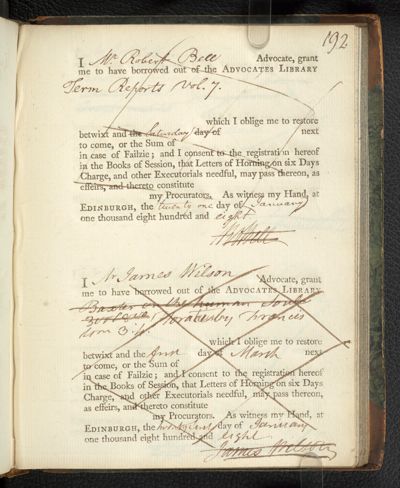 192
I Mr Robert Bell Advocate, grant
me to have borrowed out of the ADVOCATES LIBRARY
Term Reports Vol. 7.
which I oblige me to restore
betwixt and the Saturday day of next
to come, or the Sum of
in case of Failzie; and I consent to the registration hereof
in the Books of Session, that Letters of Horning on six Days
Charge, and other Executorials needful, may pass thereon, as
effeirs, and thereto constitute
my Procurators. As witness my Hand, at
EDINBURGH, the twenty one day of January
one thousand eight hundred and eight
Bell
I Mr James Wilson Advocate, grant
me to have borrowed out of the ADVOCATES LIBRARY
Baxter on the human Soul
by Francis
3
which I oblige me to restore
betwixt and the first day of March next
to come, or the Sum of
in case of Failzie; and I consent to the registration hereof
in the Books of Session, that Letters of Horning on six Days
Charge, and other Executorials needful, may pass thereon,
as effeirs, and thereto constitute
my Procurators. As witness my Hand, at
EDINBURGH, the day of January
one thousand eight hundred and eight
James Wilson